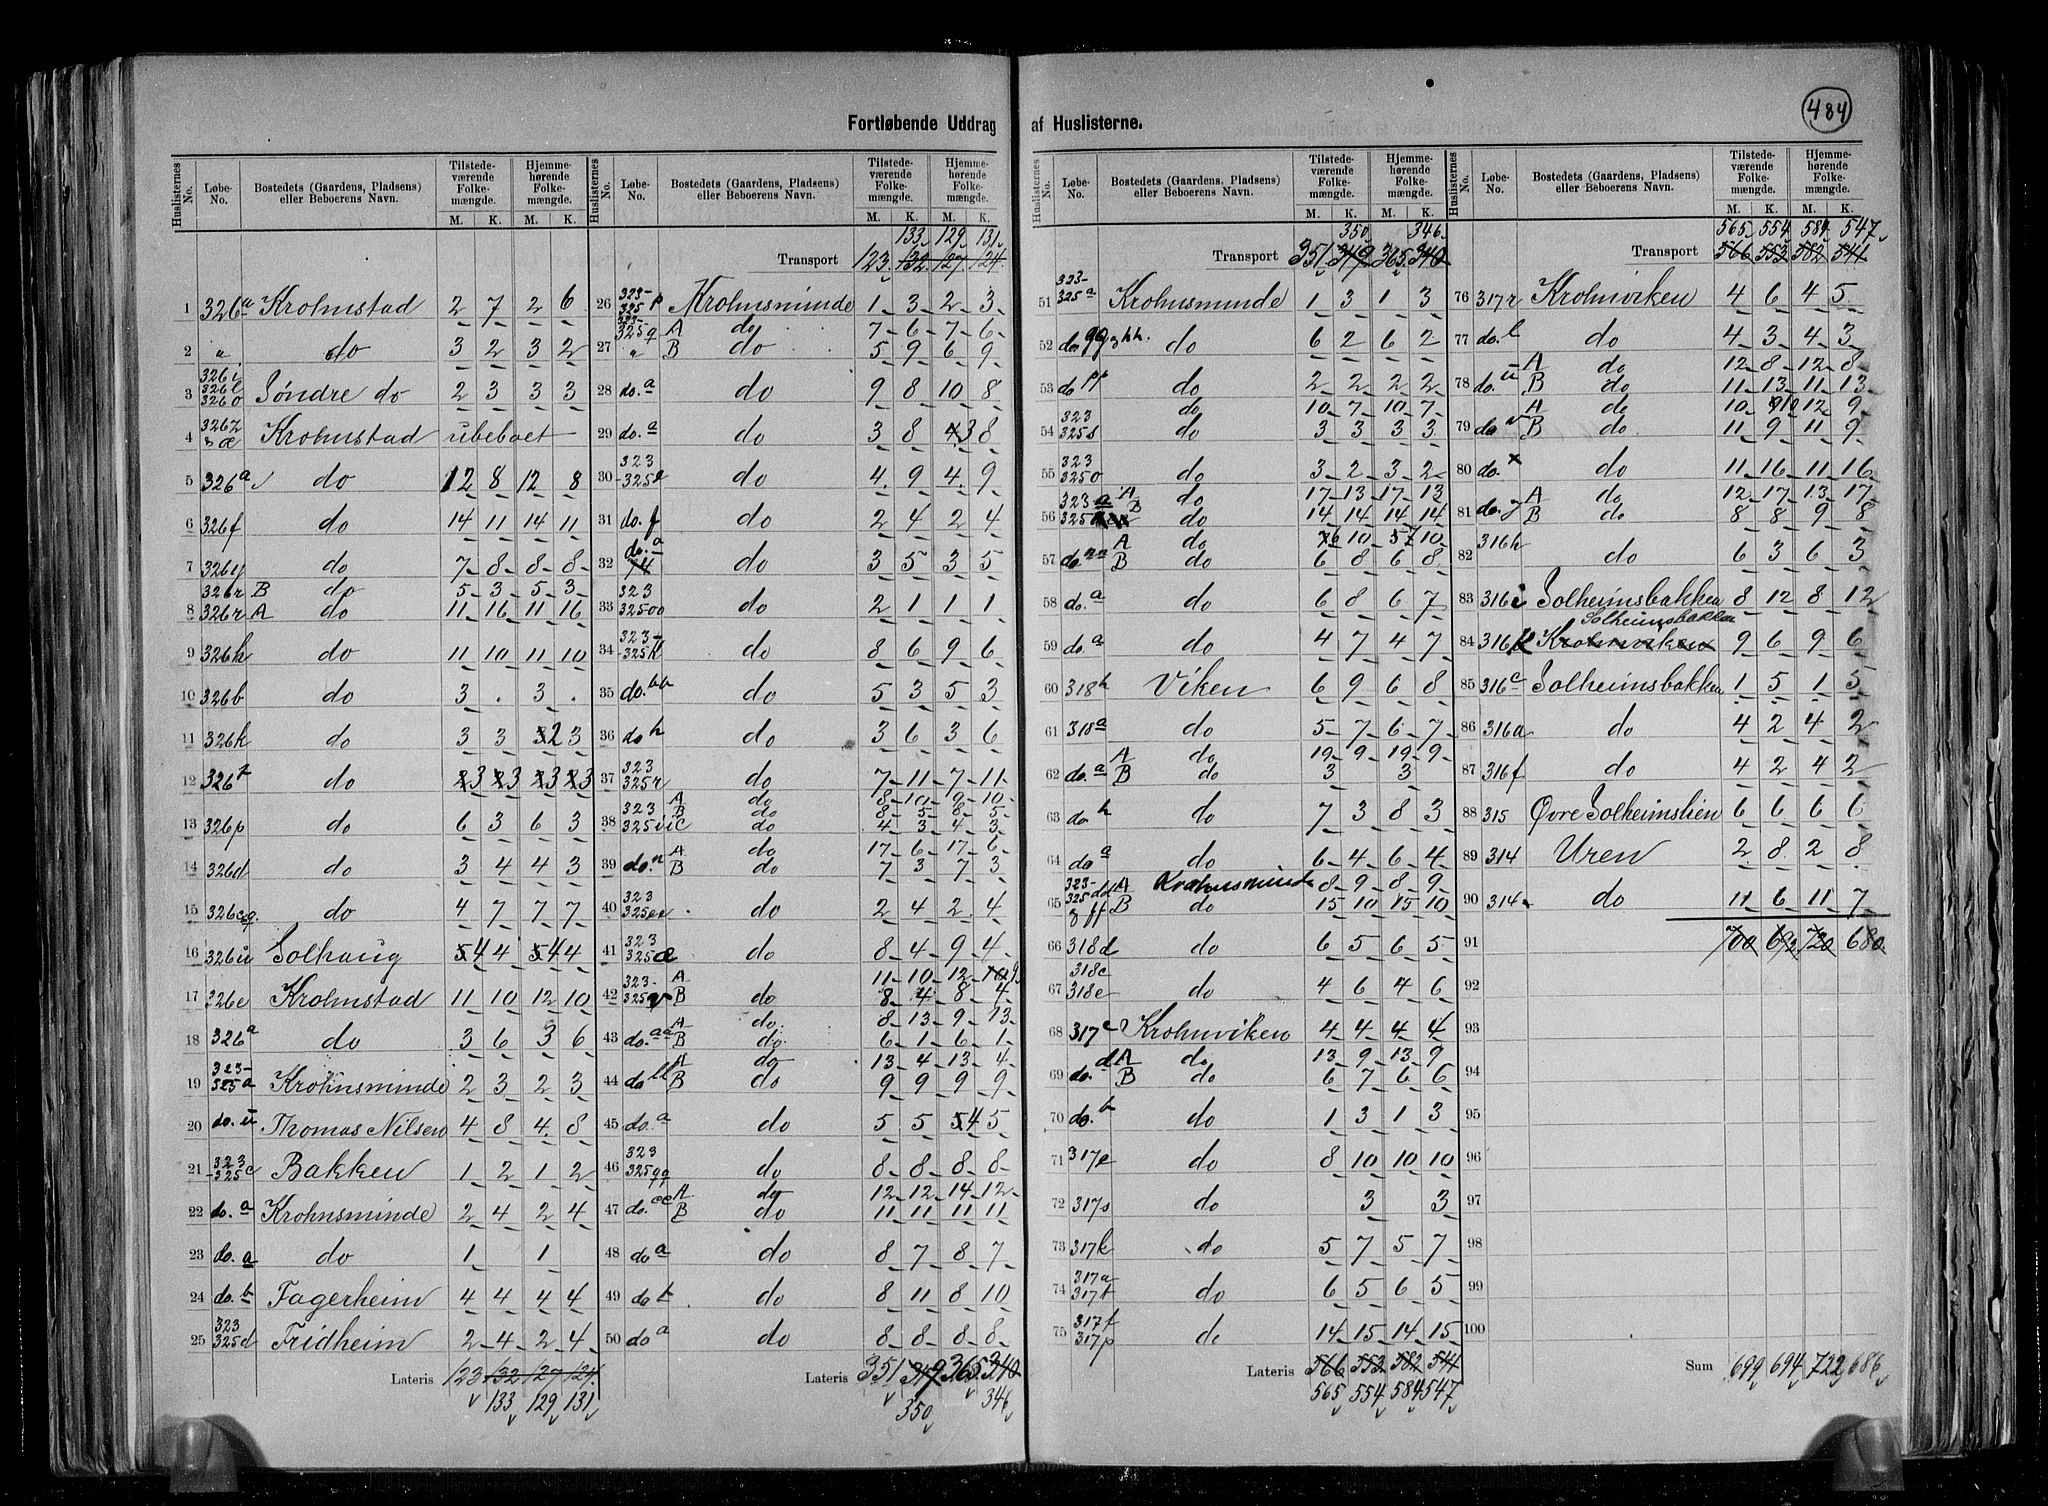 484
Fortløbende Uddrag af Huslisterne.
Huslisternes No. Løbe-No. Bostedets (Gaardens, Pladsens) eller Beboerens Navn. Tilstedeværende Folkemængde. M. K. Hjemmehørende Folkemængde. M. K.
1 326a Krohnstad 2 7 2 6
2 " do 3 2 3 2
3 326i 326l 326o Søndre do 2 3 3 3
4 326z æ Krohnstad ubeboet
5 326a do 12 8 12 8
6 326f do 14 11 14 11
7 326y do 7 8 8 8
326r B do 5 3 5 3
8 326r A do 11 16 11 16
9 326h do 11 10 11 10
10 326b do 3 . 3 .
11 326k do 3 3 2 3
12 326t do 3 3 3 3
13 326p do 6 3 6 3
14 326d do 3 4 4 3
15 326cq do 4 7 7 7
16 326u Solhaug 4 4 4 4
17 326e Krohnstad 11 10 12 10
18 326a do 3 6 3 6
19 323-325a Krohnsminde 2 3 2 3
20 do. u Thomas Nilsen 4 8 4 8
21 323-325c Bakken 1 2 1 2
22 do. a Krohnsminde 2 4 2 4
23 do. a do 1 1
24 do. b Fagerheim 4 4 4 4
25 323 325d Fridheim 2 4 2 4
Lateris 123 132 127 124
133 129 131
Huslisternes No. Løbe-No. Bostedets (Gaardens, Pladsens) eller Beboerens Navn. Tilstedeværende Folkemængde. M. K. Hjemmehørende Folkemængde. M. K.
133 129 131
Transport 123 132 127 124
26 323-325p Krohnsminde 1 3 2 3
323-325q A do 7 6 7 6
27 " B do 5 9 6 9
28 do. a do 9 8 10 8
29 do. a do 3 8 3 8
30 323-325e do 4 9 4 9
31 do. f do 2 4 2 4
32 do. a do 3 5 3 5
33 323 325oo do 2 1 1 1
34 323-325k do 8 6 9 6
35 do. bb do 5 3 5 3
36 do h do 3 6 3 6
37 323 325r do 7 11 7 11
A do 8 10 9 10
38 323 325 B do 8 5 8 5
C do 4 3 4 3
A do 17 6 17 6
39 do. n B do 7 3 7 3
40 323 325ee do 2 4 2 4
41 323 325æ do 8 4 9 4
A 11 10 12 9
42 323-325v B do 8 4 8 4
A do 8 13 9 13
43 do. aa B do 6 1 6 1
A do 13 4 13 4
44 do ll B do 9 9 9 9
45 do. a do 5 5 4 5
46 323 325qq do 8 8 8 8
A do 12 12 14 12
47 do. cc B do 11 11 11 11
48 do a do 8 7 8 7
49 do t do 8 11 8 10
50 do a do 8 8 8 8
Lateris 351 349 365 340
350 346
Huslisternes No. Løbe-No. Bostedets (Gaardens, Pladsens) eller Beboerens Navn. Tilstedeværende Folkemængde. M. K. Hjemmehørende Folkemængde. M. K.
350 346
Transport 351 349 365 340
51 323-325a Krohnsminde 1 3 1 3
52 do. gg hh. do 6 2 6 2
53 do pp do 2 2 2 2
do 10 7 10 7
54 323 325s do 3 3 3 3
55 323 325o do 3 2 3 2
323 a A do 17 13 17 13
56 325 B do 14 14 14 14
A do 6 10 7 10
57 do nn B do 6 8 6 8
58 do. a do 6 8 6 7
59 do. a do 4 7 4 7
60 318h Viken 6 9 6 8
61 318a do 5 7 6 7
A do 19 9 19 9
62 do. a B do 3 3
63 do h do 7 3 8 3
64 do a do 6 4 6 4
323-325dd A Krohnsminde 8 9 8 9
65 ff B do 15 10 15 10
66 318d do 6 5 6 5
67 318c 318e do 4 6 4 6
68 317c Krohnviken 4 4 4 4
d A do 13 9 13 9
69 do. B do 6 7 6 6
70 do. b do 1 3 1 3
71 317e do 8 10 10 10
72 317s do 3 3
73 317k do 5 7 5 7
74 317a 317t do 6 5 6 5
75 317f 317p do 14 15 14 15
Lateris 566 552 582 541
565 554 584 547
Huslisternes No. Løbe-No. Bostedets (Gaardens, Pladsens) eller Beboerens Navn. Tilstedeværende Folkemængde. M. K. Hjemmehørende Folkemængde. M. K.
565 554 584 547
Transport 566 552 582 541
76 317r Krohnviken 4 6 4 5
77 do. l do 4 3 4 3
A do 12 8 12 8
78 do. u B do 11 13 11 13
A do 10 10 12 9
79 do v B do 11 9 11 9
80 do. x do 11 16 11 16
A do 12 17 13 17
81 do. y B do 8 8 9 8
82 316h do 6 3 6 3
83 316i Solheimsbakken 8 12 8 12
Solheimsbakken
84 316k Krohnviken 9 6 9 6
85 316c Solheimsbakken 1 5 1 5
86 316a do 4 2 4 2
87 316f do 4 2 4 2
88 315 Øvre Solheimslien 6 6 6 6
89 314 Uren 2 8 2 8
90 314 do 11 6 11 7
91 700 692 720 680
92
93
94
95
96
97
98
99
100
Sum 699 694 722 686